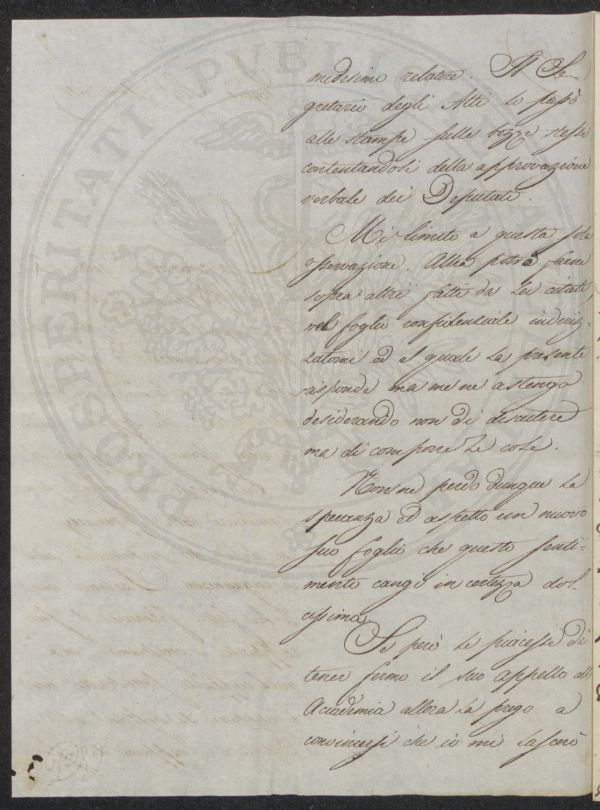 PROSPERITATI PVBLICAE
medesimo relatore. Il Se-
gretario degli Atti lo passò
alle stampe sulle bozze stesse
contentandosi della approvazione
verbale dei Deputati.
Mi limito a questa sola
osservazione. Altra potrei farne
sopra altri fatti da Lei citati
nel foglio confidenziale indiriz-
zatomi ed al quale la presente
risponde ma me ne astengo
desiderando non di discutere
ma di comporre le cose.
Non ne perdo dunque la
speranza ed aspetto un nuovo
suo foglio che questo senti-
mento cangi in certezza dol-
cissima.
Se però le piacesse di
tener fermo il suo appello all'
Accademia allora la prego a
convincersi che io mi lascerò